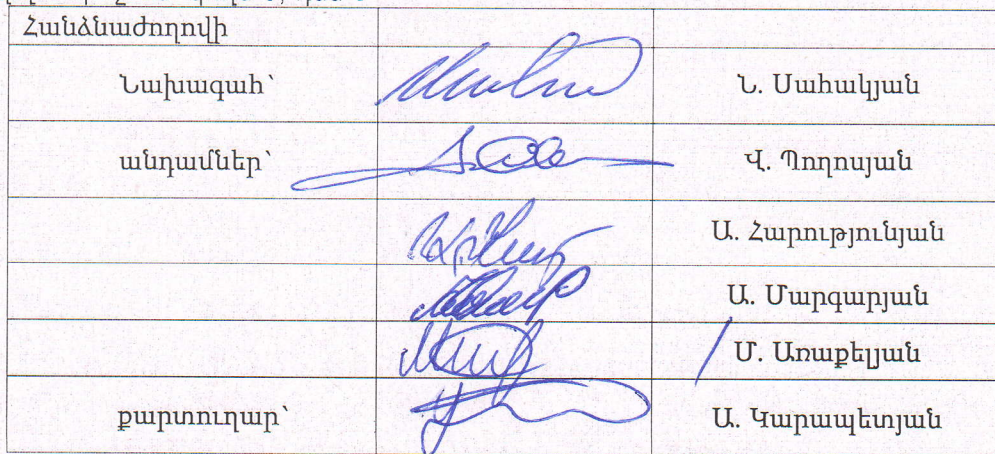 Հանձնաժողովի
Նախագահ՝ Ն. Սահակյան
անդամներ՝ Վ. Պողոսյան
Ա. Հարությունյան
Ա. Մարգարյան
Մ. Առաքելյան
քարտուղար՝ Ա. Կարապետյան